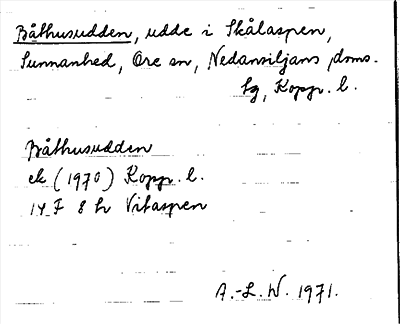 Båthusudden, udde i Skålaspen,
Sunnanhed, Ore sn, Nedansiljans doms.
sg, Kopp. l.
Båthusudden
ek (1970) Kopp. l.
14 F 8 h Vitaspen
A.-L. W. 1971.